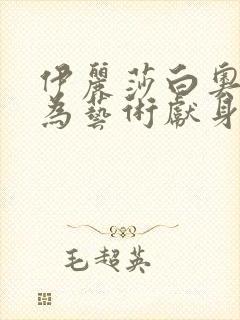 伊麗莎白奧
為藝術獻身
毛超英